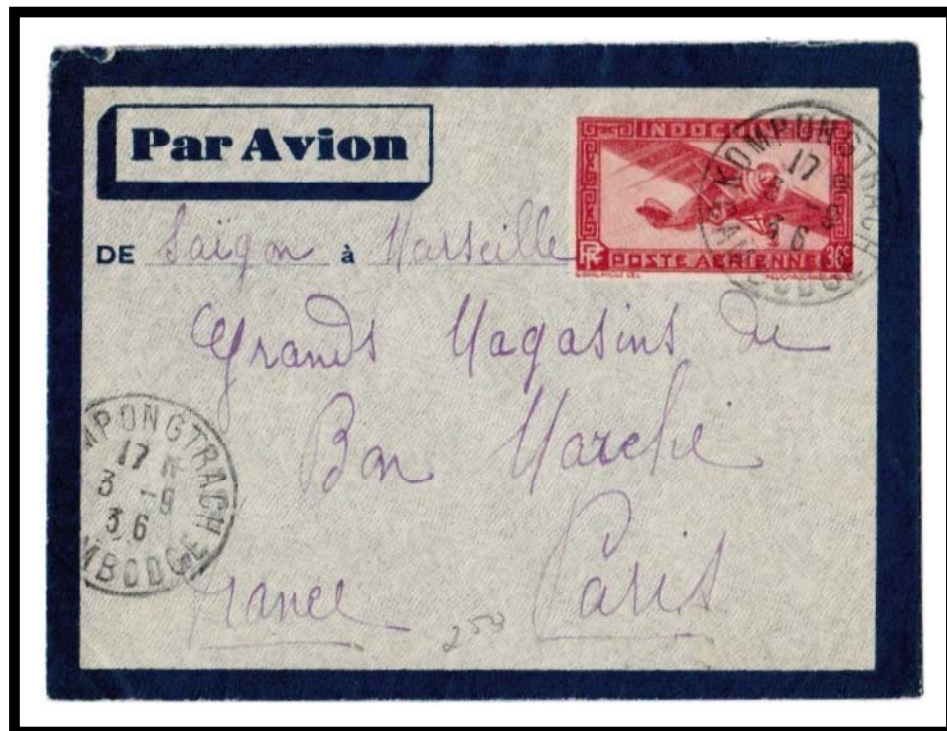 Par Avion
INDOCHINE
RF POSTE AERIENNE 36c
KOMPONGTRACH
17
3 -9
36
CAMBODGE
DE Saïgon à Marseille
Grands Magasins du
Bon Marché
MPONGTRACH
17
3 -9
36
MBODGE
France Paris